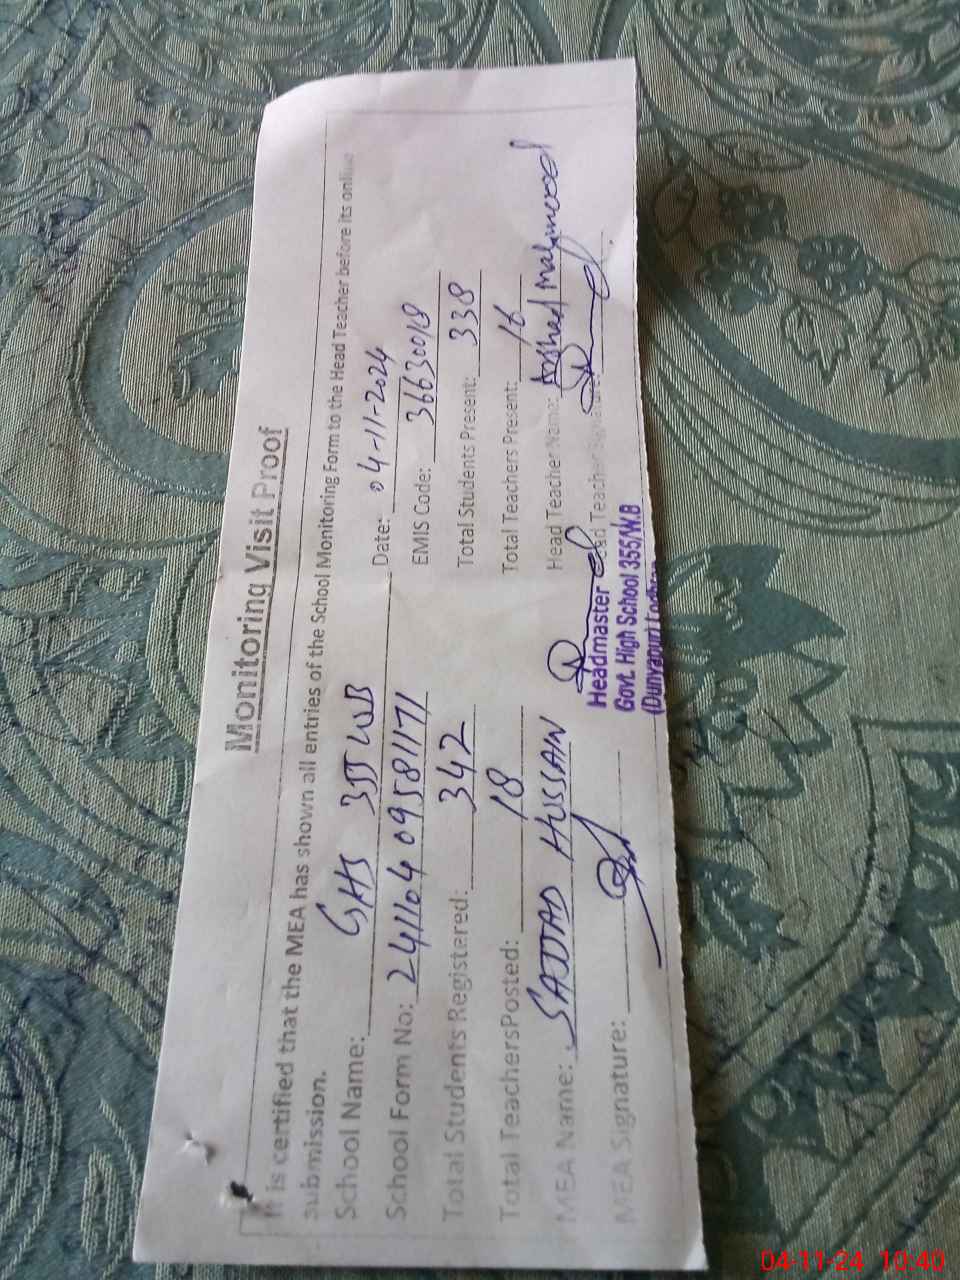 Monitoring Visit Proof
It is certified that the MEA has shown all entries of the School Monitoring Form to the Head Teacher before its online
submission.
School Name: GHS 355 WB Date: 04-11-2024
School Form No: 241104 09581171 EMIS Code: 36630018
Total Students Registered: 342 Total Students Present: 338
Total TeachersPosted: 18 Total Teachers Present: 16
MEA Name: SAJJAD HUSSAIN Head Teacher Name: Arshad Mahmood
MEA Signature: Head Teacher Signature:
Headmaster
Govt. High School 355/W.B
(Dunyapur) Lodhran
04-11-24 10:40